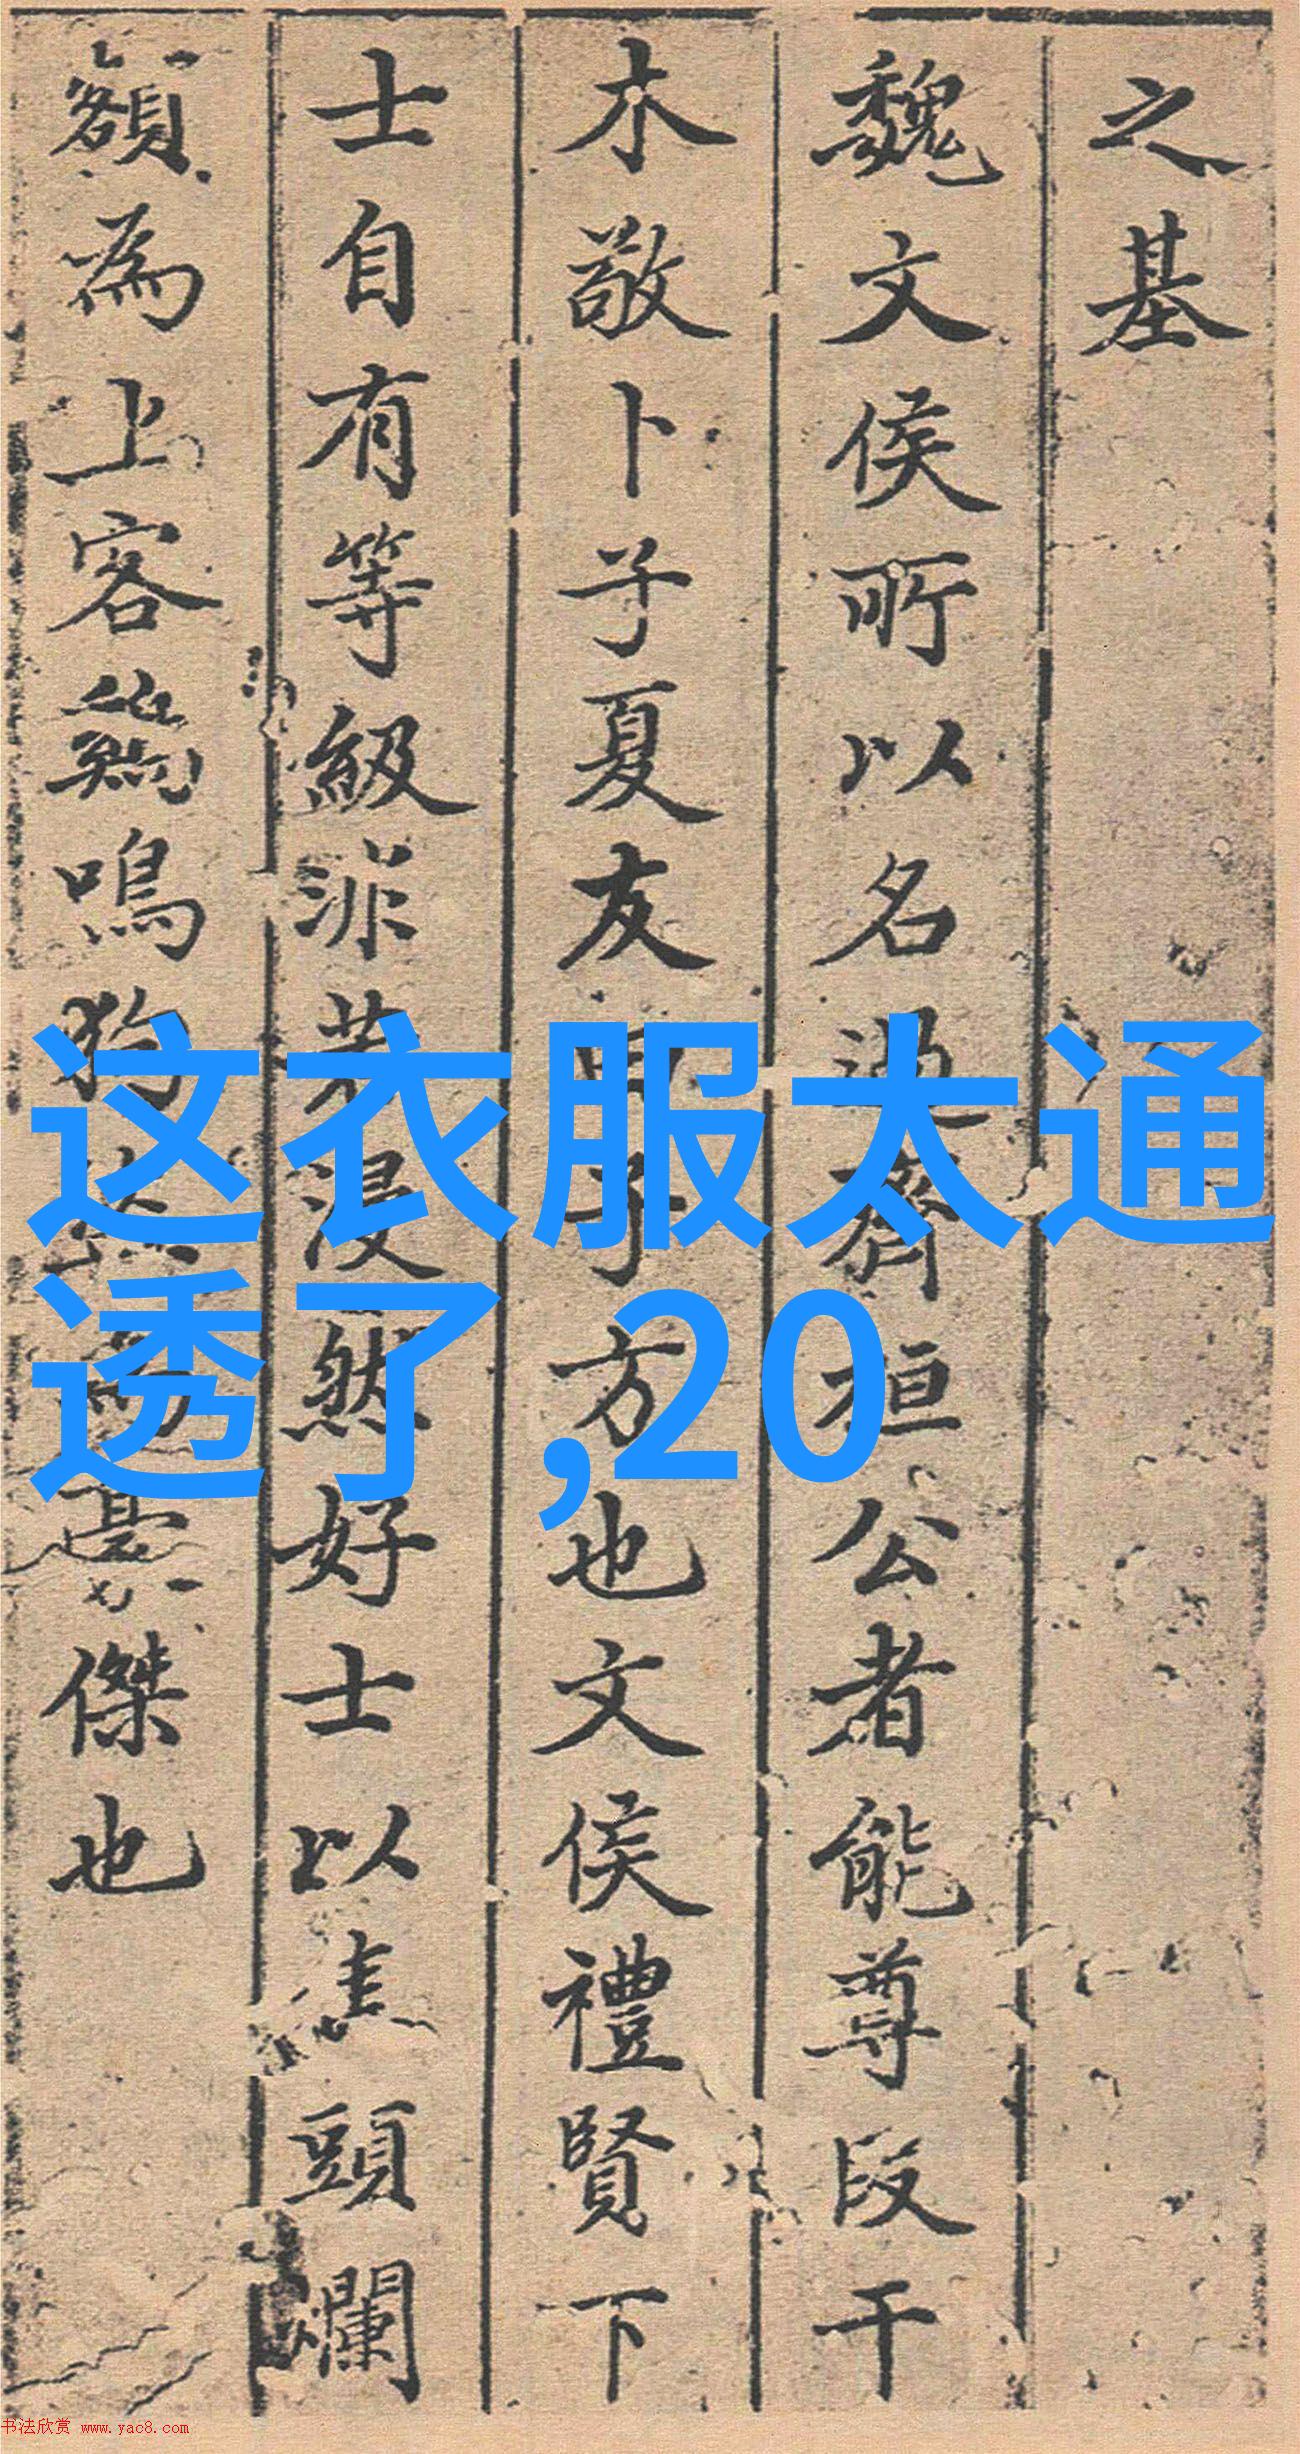 之基
魏文侯所以名過齊桓公者能尊段干
木敬卜子夏友田子方也文侯禮賢下
士自有等級非若漫然好士以焦頭爛
額為上客鷄鳴狗 為豪傑也
这衣服太通
透了,20
书法欣赏 www.yac8.com